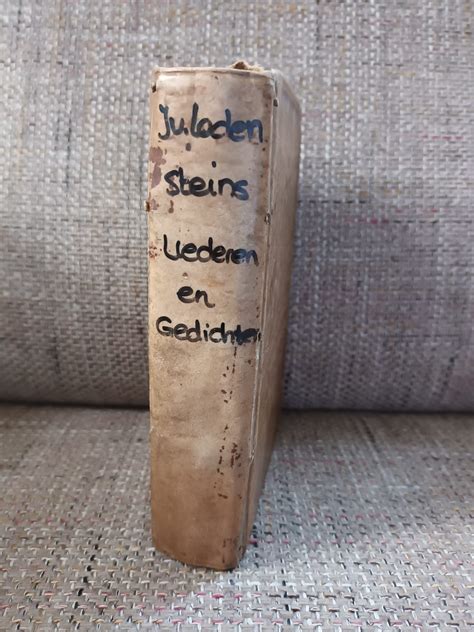 Ju.Loden
Steins
Liederen
en
Gedichten